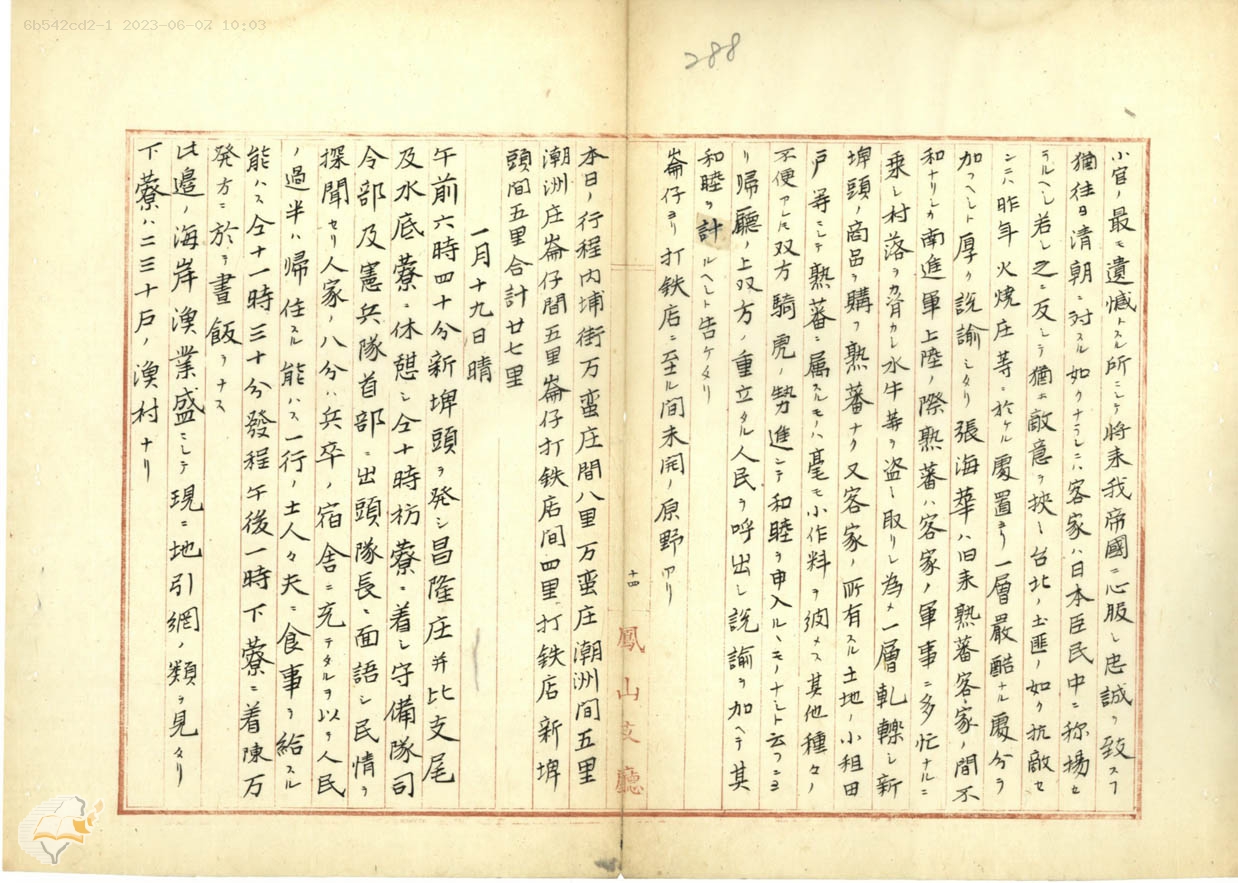 6b542cd2-1 2023-06-07 10:03
288
小官ノ最モ遺憾トスル所ニシテ将来我帝國ニ心服シ忠誠ヲ致スヿ
猶往日清朝ニ対スル如クナランニハ客家ハ日本臣民中ニ称揚セ
ラルヘシ若シ之ニ反シテ猶ホ敵意ヲ挾ミ台北ノ土匪ノ如ク抗敵セ
ンニハ昨年火焼庄等ニ於ケル處置ヨリ一層嚴酷ナル處分ヲ
加フヘシト厚ク説諭シタリ張海華ハ旧来熟蕃客家ノ間不
和ナリシカ南進軍上陸ノ際熟蕃ハ客家ノ軍事ニ多忙ナルニ
乗シ村落ヲ刼カシ水牛等ヲ盗ミ取リシ為メ一層軋轢シ新
埤頭ノ商品ヲ購フ熟蕃ナク又客家ノ所有スル土地ノ小租田
戸等ニシテ熟蕃ニ属スルモノハ毫モ小作料ヲ納メス其他種々ノ
不便アルモ双方騎虎ノ勢進ンテ和睦ヲ申入ルヽモノナシト云フニヨ
リ帰廳ノ上双方ノ重立タル人民ヲ呼出シ説諭ヲ加ヘテ其
和睦ヲ計ルヘシト告ケタリ
崙仔ヨリ打鉄店ニ至ル間未開ノ原野アリ
十四
鳳山支廳
本日ノ行程内埔街万蛮庄間八里万蛮庄潮洲間五里
潮洲庄崙仔間五里崙仔打鉄店間四里打鉄店新埤
頭間五里合計廿七里
一月十九日晴
午前六時四十分新埤頭ヲ発シ昌隆庄并北支尾
及水底藔ニ休憩シ仝十時枋藔ニ着シ守備隊司
令部及憲兵隊首部ニ出頭隊長ニ面語シ民情ヲ
探聞セリ人家ノ八分ハ兵卒ノ宿舎ニ充テタルヲ以テ人民
ノ過半ハ帰住スル能ハス一行ノ土人々夫ニ食事ヲ給スル
能ハス仝十一時三十分發程午後一時下藔ニ着陳万
発方ニ於テ晝飯ヲナス
此邉ノ海岸漁業盛ニシテ現ニ地引網ノ類ヲ見タリ
下藔ハ二三十戸ノ漁村ナリ